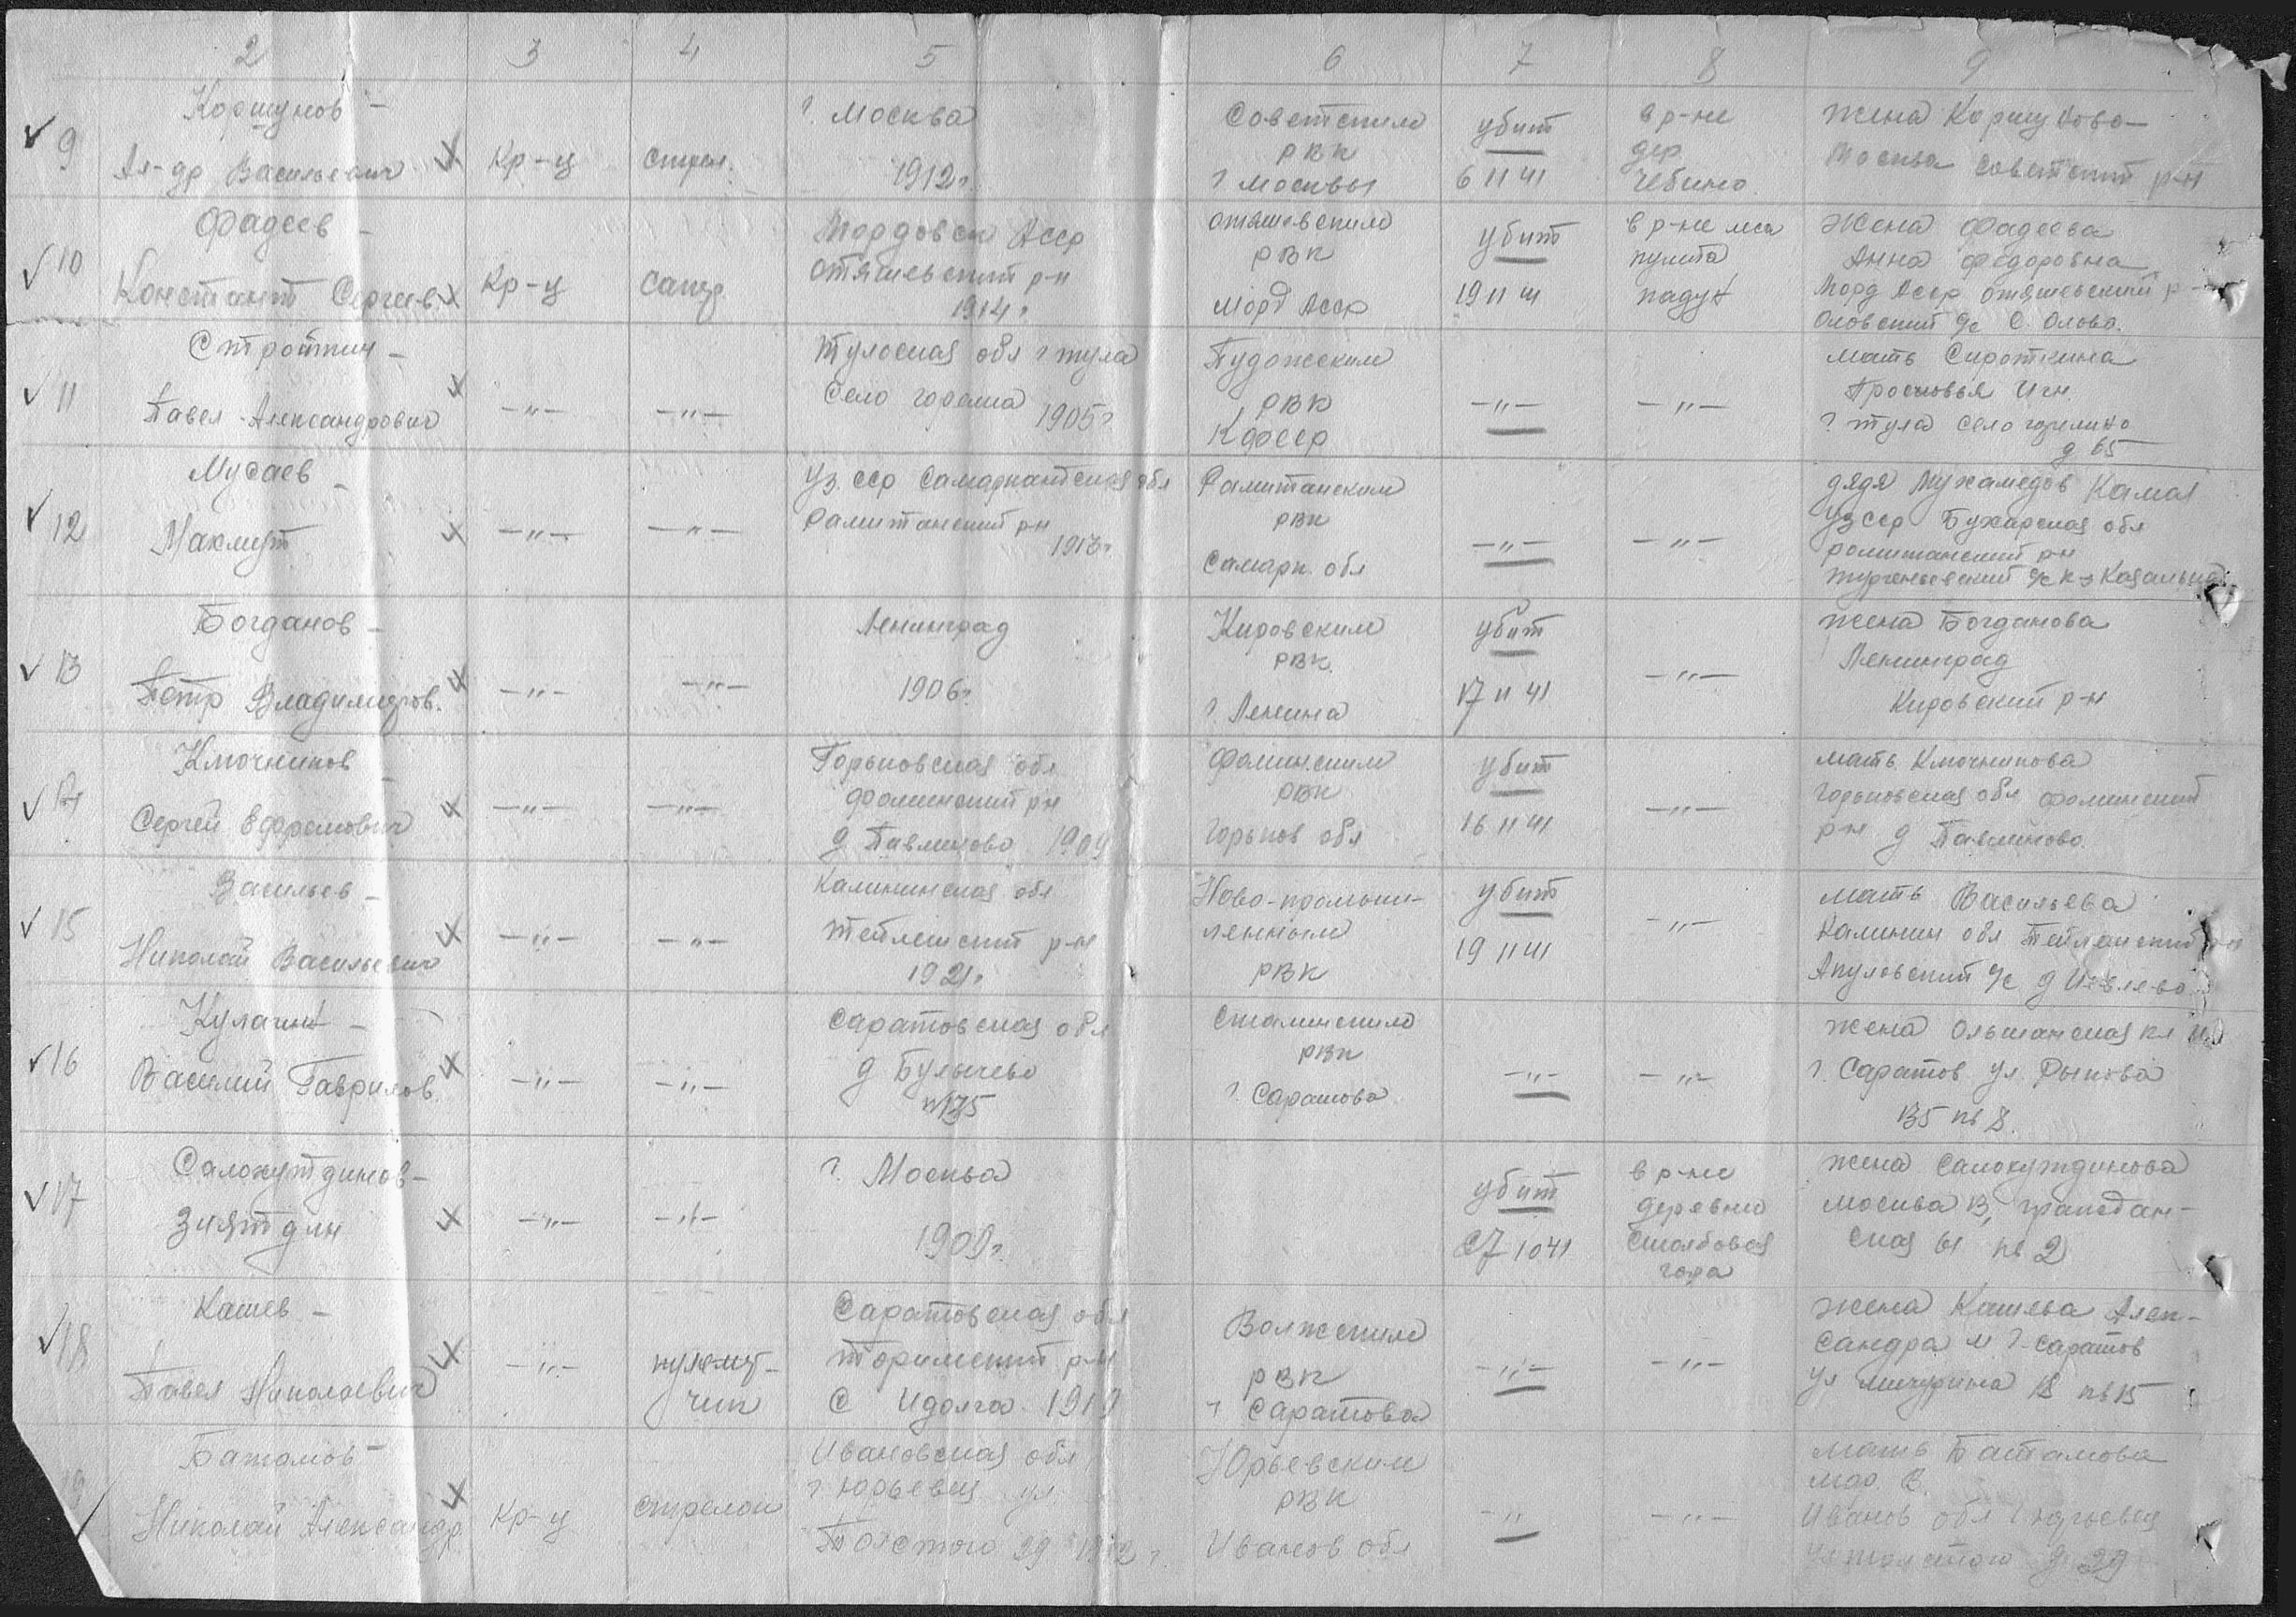 2 3 4 5 6 7 8 9
9
Коршунов -
Ал-др Васильевич
Кр-ц
Стрел.
г. Москва
1912 г.
Советским
РВК
г Москвы
убит
6 11 41
в р-не
дер.
Чебино
жена Коршунова -
Москва Советский р-н
10
Фадеев -
Константи Сергеев.
Кр-ц
Сапер
Мордовск Асср
Отяшевский р-н
1914 г
Отяшевским
РВК
Морд Асср
убит
19 11 41
в р-не
пункта
падун
Жена Фадеева
Анна Федоровна
Морд Асср Отяшевский р-
с/с С.
11
-
Павел Александрович
-"-
-"-
Тульская обл г тула
Село горелка 1905 г
Пудожским
РВК
Кфсср
-"-
-"-
мать Сироткина
Просковья Игн.
г тула село
д 65
12
Мусаев -
Махмут
-"-
-"-
Уз. сср Самаркантская обл
рамитанский рн
1913 г.
Рамитанским
РВК
Самарк. обл
-"-
-"-
дядя Мухамедов Камал
Уз сср Бухарская обл
ромитанский рн
с/с к-з
13
Богданов -
Петр Владимиров.
-"-
-"-
Ленинград
1906 г.
Кировским
РВК.
г. Ленина
убит
17 11 41
-"-
жена Богданова
Ленинград
Кировский р-н
14
Ключников -
Сергей Ефремович
-"-
-"-
Горьковская обл
Фоминский рн
д Павликово 1909
Фоминским
РВК
Горьков обл
убит
16 11 41
-"-
мать Ключникова
Горьковская обл Фоминский
р-н д Павликово.
15
Васильев -
Николай Васильевич
-"-
-"-
Калининская обл
р-н
1921 г.
Ново-промыш-
ленным
РВК
убит
19 11 41
-"-
мать Васильева
Калинин обл
с/с д
16
Кулагин -
Василий Гаврилов.
-"-
-"-
Саратовская обл
д Булычево
Сталинским
РВК
г. Саратова
-"-
-"-
жена Ольшанская кл
г. Саратов ул. Рыкова
135 кв 8.
17
Салохутдинов -
Зиятдин
-"-
-"-
г. Москва
1909 г.
убит
27 10 41
в р-не
деревни
Столбовая
гора
жена Салохутдинова
Москва В, граждан-
ская 61 кв 2
18
Кашев -
Павел Николаевич
-"-
пулемет-
чик
Саратовская обл
р-н
С Идолга 1919
Волжским
РВК
г Саратова
-"-
-"-
жена Кашева Алек-
сандра М г. Саратов
ул Мичурина 18 кв 15
19
Баталов -
Николай Александр.
Кр-ц
стрелок
Ивановская обл
г Юрьевец ул.
Толстого 29
Юрьевским
РВК
Иванов обл
-"-
-"-
мать Баталова
Мар. В.
Иванов обл г Юрьевец
ул толстого д 29